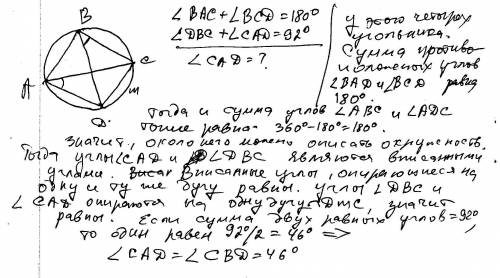 B
A
C
D
m
∠BAC+∠BCD=180°
∠DBC+∠CAD=92°
∠CAD=?
у этого четырех
угольника.
Сумма противо
положеных углов
∠BAD и ∠BCD равна
180°.
Тогда и сумма углов ∠ABC и ∠ADC
тоже равна 360°-180°=180°.
Значит, около него можно описать окружность.
Тогда углы ∠CAD и ∠DBC являются вписанными
углами. Вписанные углы, опирающиеся на
одну и ту же дугу равны. углы ∠DBC и
∠CAD опираются на одну дугу DmC, значит
равны. Если сумма двух равных углов=92°,
то один равен 92°/2=46° ⇒
∠CAD=∠CBD=46°